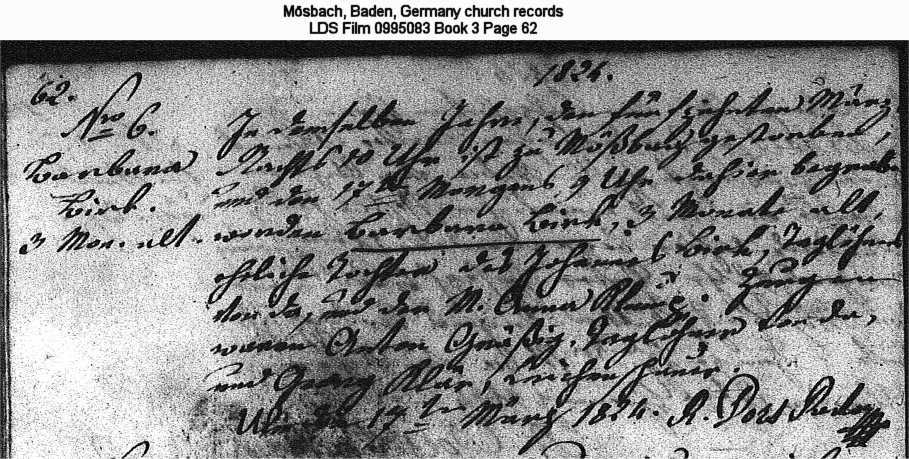 Mösbach, Baden, Germany church records
LDS Film 0995083 Book 3 Page 62
62. 1824.
Nro 6.
Barbara
Birk.
3 Mon. alt.
In demselben Jahre, den fünfzehnten März
Nachts 10 Uhr ist zu Mößbach gestorben,
und den 17ten Morgens 9 Uhr dahier begraben
worden Barbara Birk, 3 Monate alt,
ehliche Tochter des Johannes Birk, Taglöhners
von da, und der M. Anna. Zeugen
waren Anton, Taglöhner von da,
und Georg.
den 17ten März 1824.